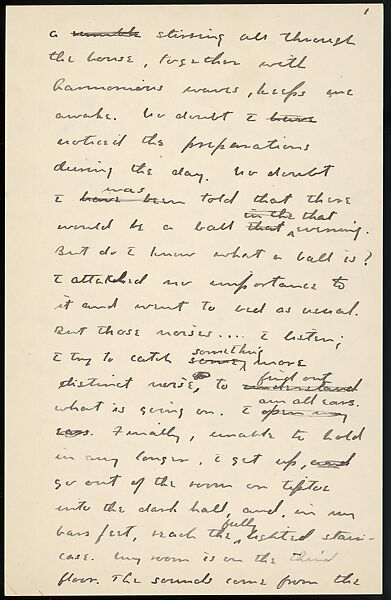 1
a rumble stirring all through
the house, together with
harmonious waves, keeps me
awake. No doubt I have
noticed the preparations
during the day. No doubt
was
I have been told that there
in the that
would be a ball that evening.
But do I know what a ball is?
I attached no importance to
it and went to bed as usual.
But those noises.... I listen;
something
I try to catch some more
find out
distinct noise, to understand
am all ears.
what is going on. I open my
ears. Finally, unable to hold
in any longer, I get up, and
go out of the room on tiptoe
into the dark hall, and, in my
fully
bare feet, reach the lighted stair-
case. My room is on the third
floor. The sounds come from the